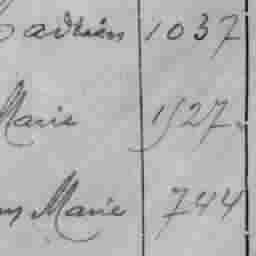 Cadrien 1037
Marie 1527
Marie 744